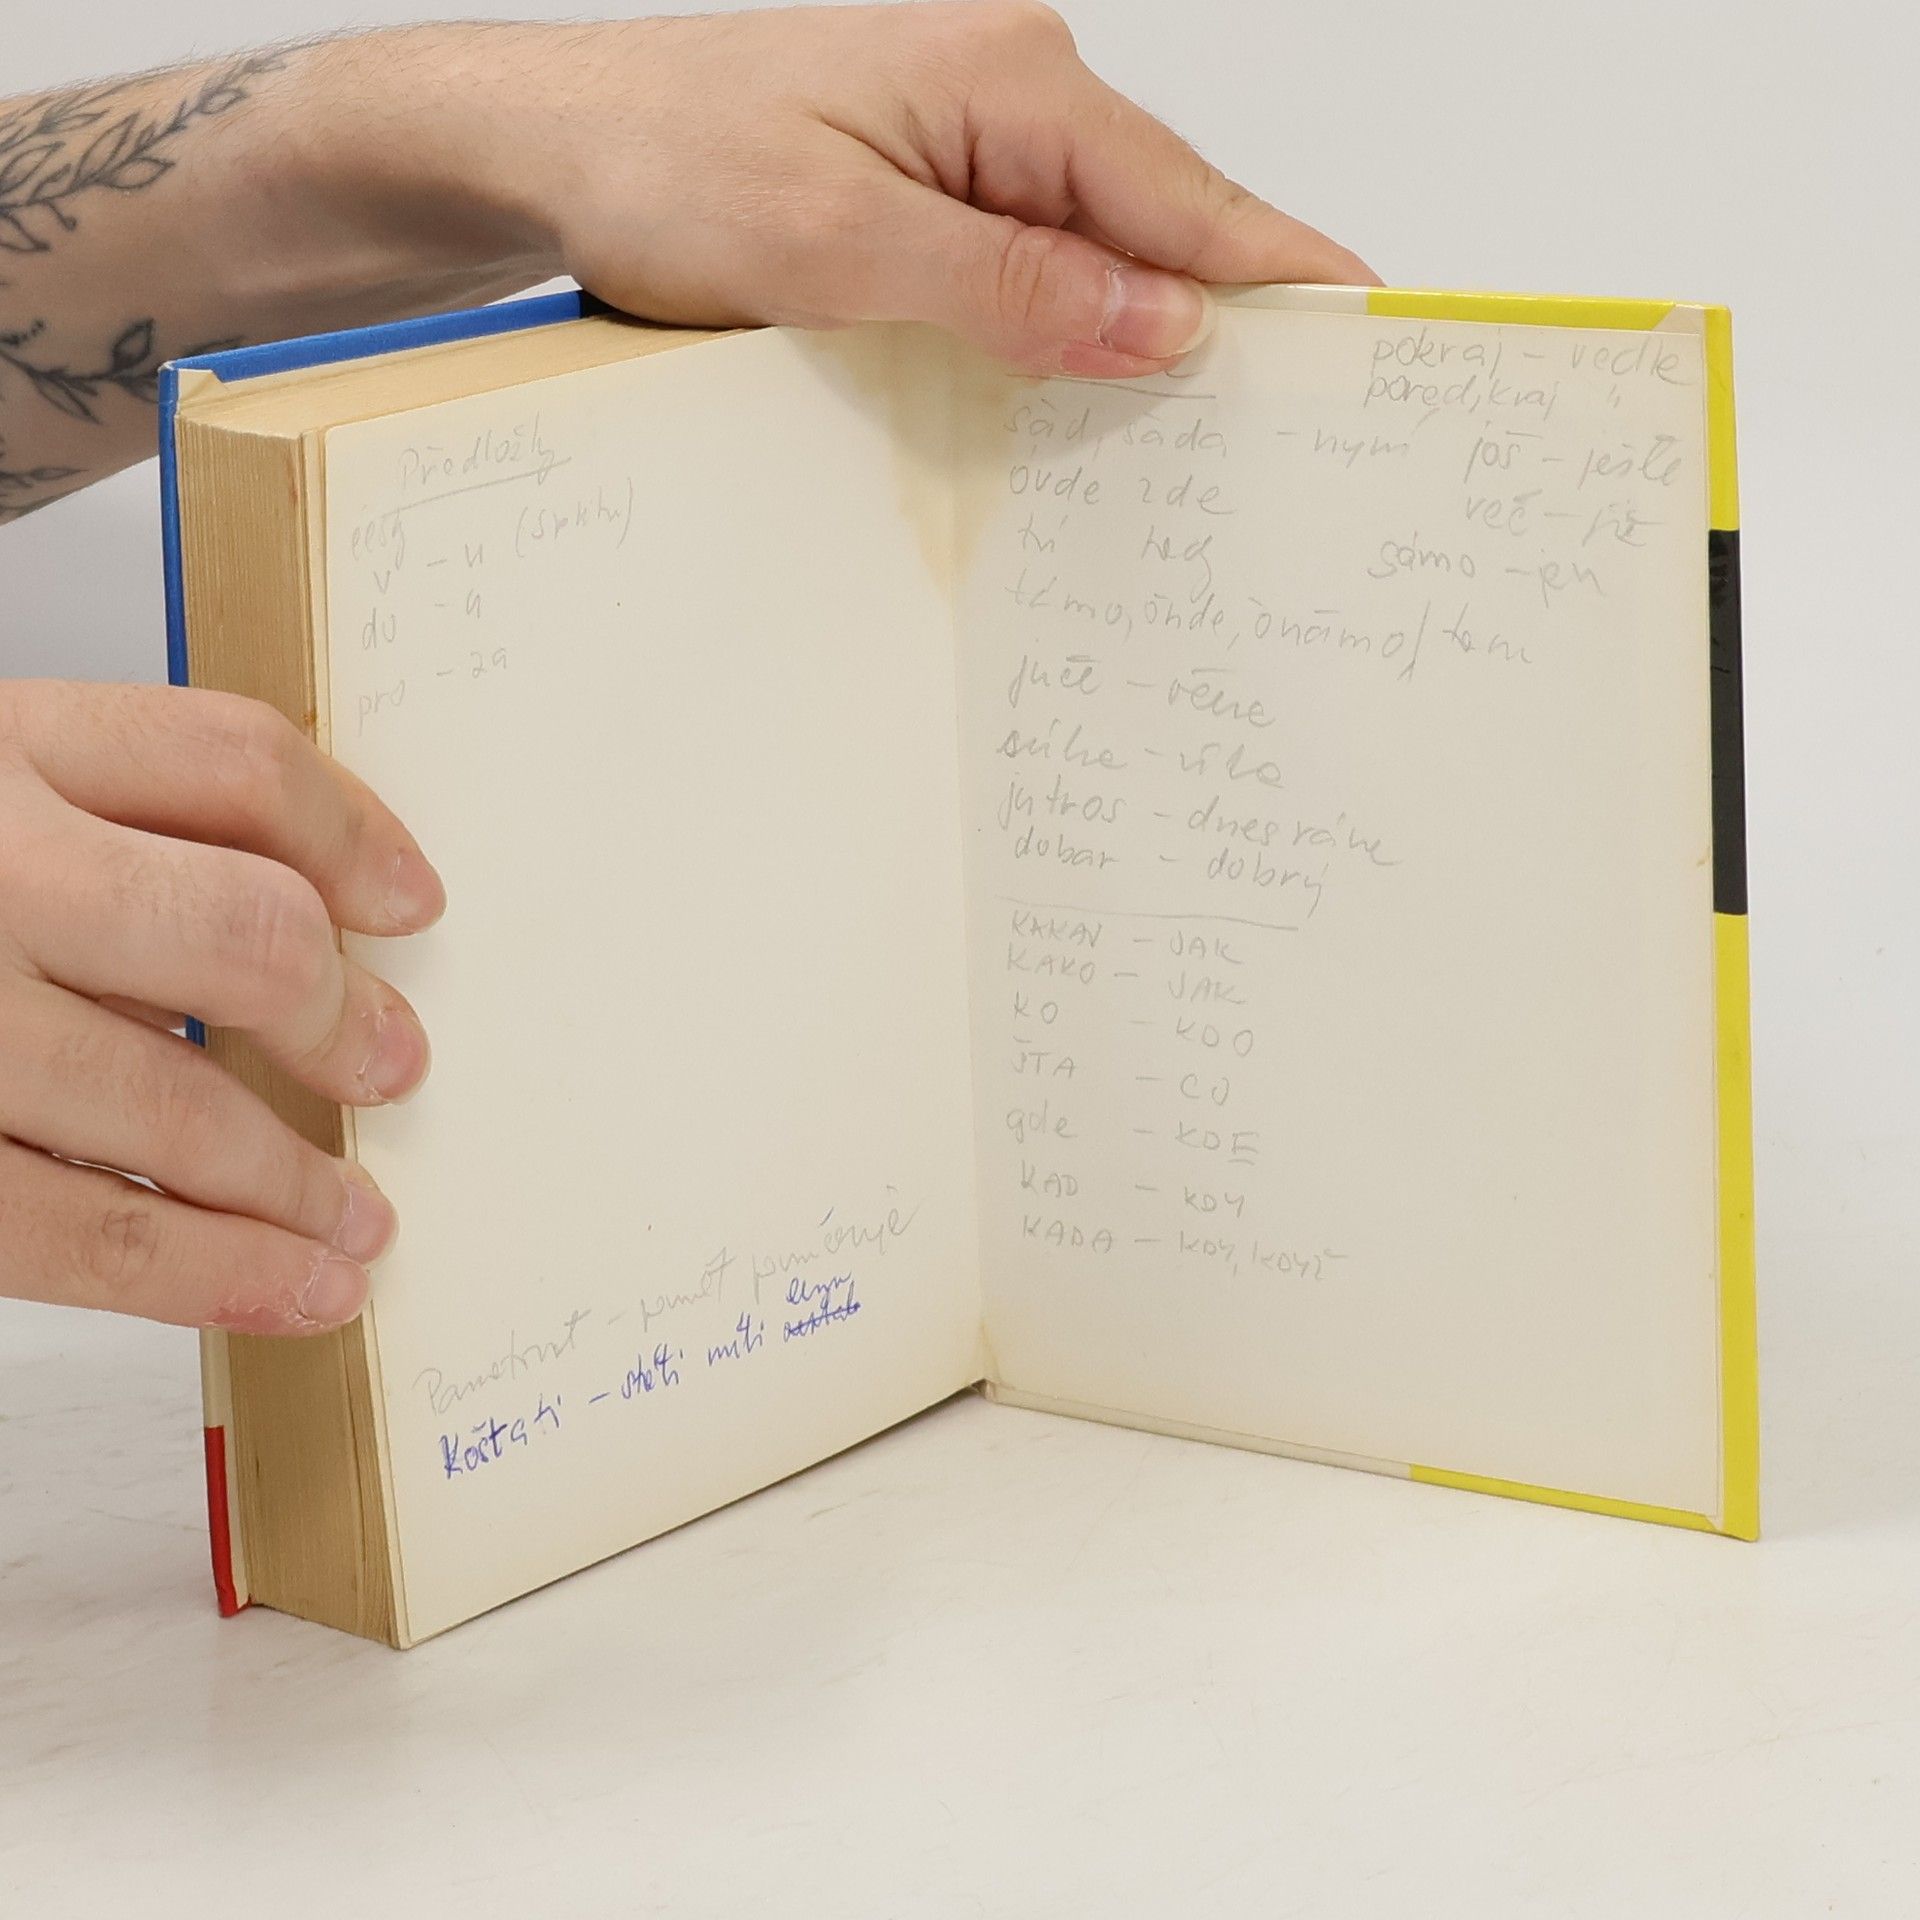 Předložky
česky
v - u (srbchr)
do - a
pro - za
Pametovat - pamět
Koštati - státi míti cenu
pokraj - vedle
pored, kraj "
sàd, sàda, - nyní još - ještě
ovde zde več - již
tú tady sámo - jen
támo, ōnde, ònāmo tam
juče - včera
jutros - dnes ráno
dobar - dobrý
KAKAV - JAK
KAKO - JAK
KO - KDO
ŠTA - CO
gde - KDE
KAD - KDY
KADA - KDY, KDYŽ